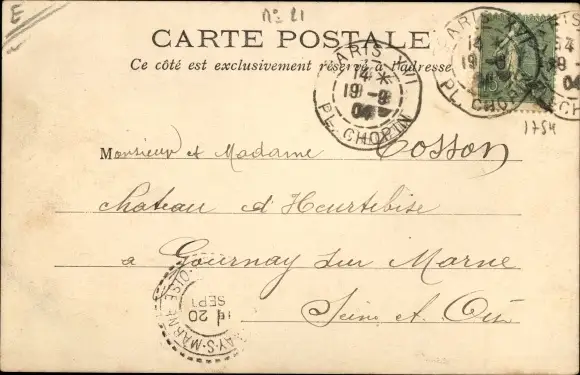 E
No 21
CARTE POSTALE
Ce côté est exclusivement réservé à l'adresse
PARIS XVI
14 *
19 -9
04
PL. CHOPIN
PARIS XVI
14
19 -9
04
PL. CHOPIN
54
-9
04
CHOPIN
1754
Monsieur et Madame Cosson
Chateau d'Heurtebise
a Gournay sur Marne
Seine et Oise
GOURNAY-S-MARNE OISE
20
SEPT